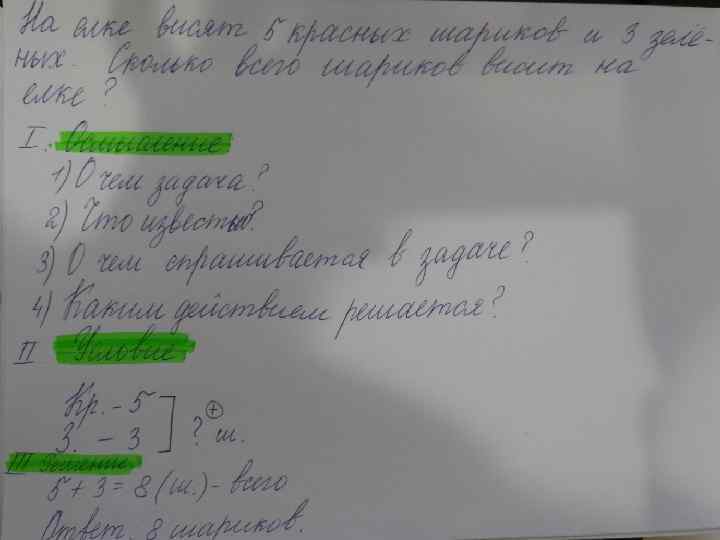 На елке висят 5 красных шариков и 3 зелё-
ных. Сколько всего шариков висит на
елке?
I. Осмысление
1) О чем задача?
2) Что известно?
3) О чем спрашивается в задаче?
4) Каким действием решается?
II Условие
Кр. - 5
З. - 3 ] ? ш. +
III Решение
5 + 3 = 8 (ш.) - всего
Ответ. 8 шариков.